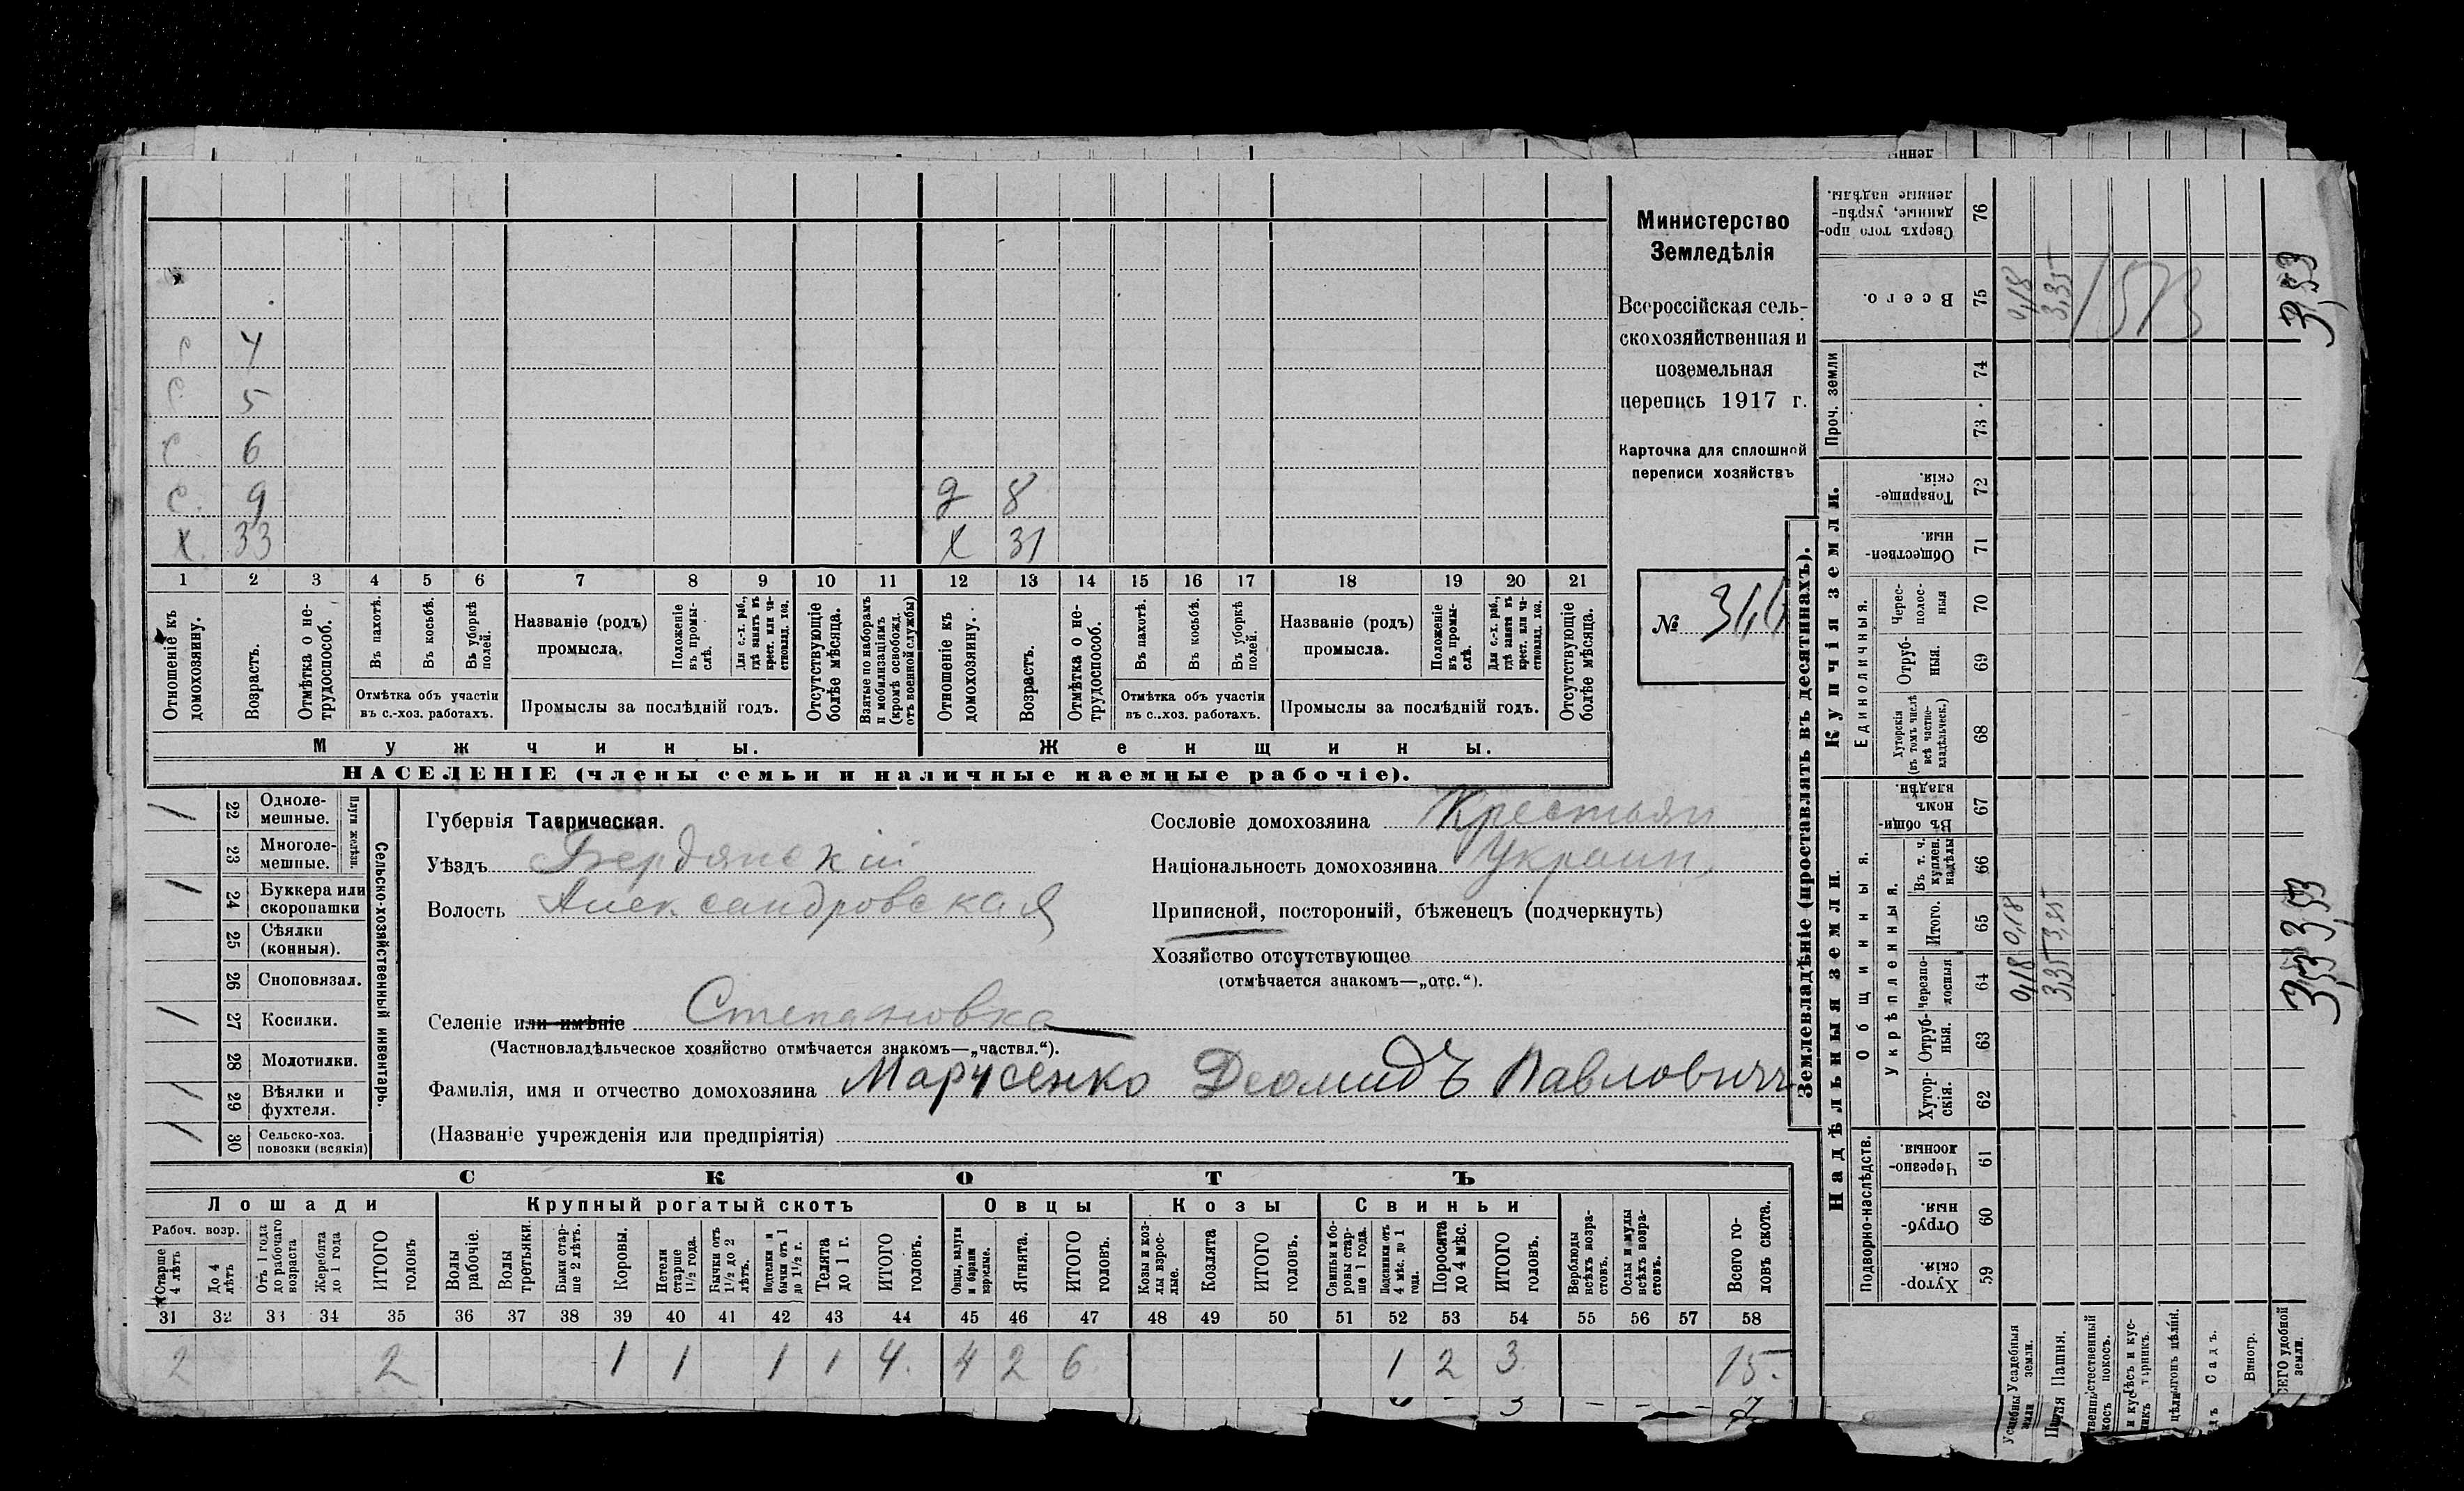 Министерство
Земледѣлія
Всероссійская сель-
скохозяйственная и
поземельная
перепись 1917 г.
Карточка для сплошной
переписи хозяйствъ
№
с 4
с 5
с 6
с. 9
х. 33
д 8
х 31
1 2 3 4 5 6 7 8 9 10 11 12 13 14 15 16 17 18 19 20 21
Отношеніе къ домохозяину.
Возрастъ.
Отмѣтка о не-трудоспособ.
Въ пахотѣ.
Въ косьбѣ.
Въ уборкѣ полей.
Отмѣтка объ участіи
въ с.-хоз. работахъ.
Названіе (родъ)
промысла.
Положеніе въ промы-слѣ.
Для с.-х. раб., гдѣ занятъ въ крест. или ча-стновлад. хоз.
Промыслы за послѣдній годъ.
Отсутствующіе болѣе мѣсяца.
Взятые по наборамъ и мобилизаціямъ (кромѣ освобожд. отъ военной службы)
Отношеніе къ домохозяину.
Возрастъ.
Отмѣтка о не-трудоспособ.
Въ пахотѣ.
Въ косьбѣ.
Въ уборкѣ полей.
Отмѣтка объ участіи
въ с.-хоз. работахъ.
Названіе (родъ)
промысла.
Положеніе въ промы-слѣ.
Для с.-х. раб., гдѣ занята въ крест. или ча-стновлад. хоз.
Промыслы за послѣдній годъ.
Отсутствующіе болѣе мѣсяца.
Мужчины.
Женщины.
НАСЕЛЕНІЕ (члены семьи и наличные наемные рабочіе).
Сельско-хозяйственный инвентарь.
Плуги желѣзн.
1 22 Одноле-мешные.
23 Многоле-мешные.
1 24 Буккера или скоропашки
25 Сѣялки (конныя).
26 Сноповязал.
1 27 Косилки.
28 Молотилки.
1 29 Вѣялки и фухтеля.
1 30 Сельско-хоз. повозки (всякія)
Губернія Таврическая.
Уѣздъ Бердянскій
Волость Александровская
Селеніе или имѣніе Степановка
(Частновладѣльческое хозяйство отмѣчается знакомъ—„частвл.“).
Фамилія, имя и отчество домохозяина Марусенко Деомидъ Павловичъ
(Названіе учрежденія или предпріятія)
Сословіе домохозяина Крестьян
Національность домохозяина Украин.
Приписной, посторонній, бѣженецъ (подчеркнуть)
Хозяйство отсутствующее
(отмѣчается знакомъ—„отс.“).
СКОТЪ
Лошади
Крупный рогатый скотъ
Овцы
Козы
Свиньи
Рабоч. возр.
Старше 4 лѣтъ
До 4 лѣтъ
Отъ 1 года до рабочаго возраста
Жеребята до 1 года
ИТОГО головъ
Волы рабочіе.
Волы третьяки.
Быки стар-ше 2 лѣтъ.
Коровы.
Нетели старше 1½ года.
Бычки отъ 1½ до 2 лѣтъ.
Подтелки и бычки отъ 1 до 1½ г.
Телята до 1 г.
ИТОГО головъ.
Овцы, валухи и бараны взрослые.
Ягнята.
ИТОГО головъ.
Козы и коз-лы взрос-лые.
Козлята
ИТОГО головъ.
Свиньи и бо-ровы стар-ше 1 года.
Подсвинки отъ 4 мѣс. до 1 года.
Поросята до 4 мѣс.
ИТОГО головъ.
Верблюды всѣхъ возра-стовъ.
Ослы и мулы всѣхъ возра-стовъ.
Всего го-ловъ скота.
31 32 33 34 35 36 37 38 39 40 41 42 43 44 45 46 47 48 49 50 51 52 53 54 55 56 57 58
2 2 1 1 1 1 4. 4 2 6 1 2 3 15.
Землевладѣніе (проставлять въ десятинахъ).
Надѣльныя земли.
Купчія земли.
Проч. земли
Подворно-наслѣдств.
Общинныя.
Укрѣпленныя.
Единоличныя.
Хутор-скія. 59
Отруб-ныя. 60
Черезпо-лосныя. 61
Хутор-скія. 62
Отруб-ныя. 63
Черезпо-лосныя 64
Итого. 65
Въ т. ч. куплен. надѣлы 66
Въ общин-номъ владѣн. 67
Хуторскія (въ томъ числѣ всѣ частно-владѣльческ.) 68
Отруб-ныя. 69
Черес-полос-ныя 70
Обществен-ныя. 71
Товарище-скія. 72
73
74
Всего. 75
Сверхъ того про-данные, укрѣп-ленные надѣлы. 76
Усадебныя земли. 0,18 0,18 0,18
Пашня. 3,35 3,35 3,35
Садъ.
Виногр.
3,53 3,53 3,53